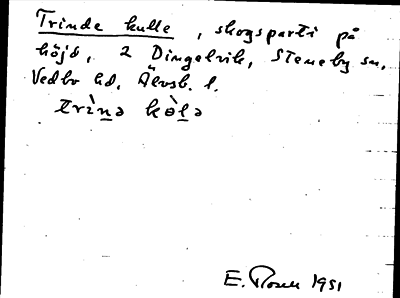 Trinde kulle, skogsparti på
höjd, 2 Dingelvik, Steneby sn,
Vedbo hd, Älvsb. l.
trìnə kòlə
E. Rosell 1951